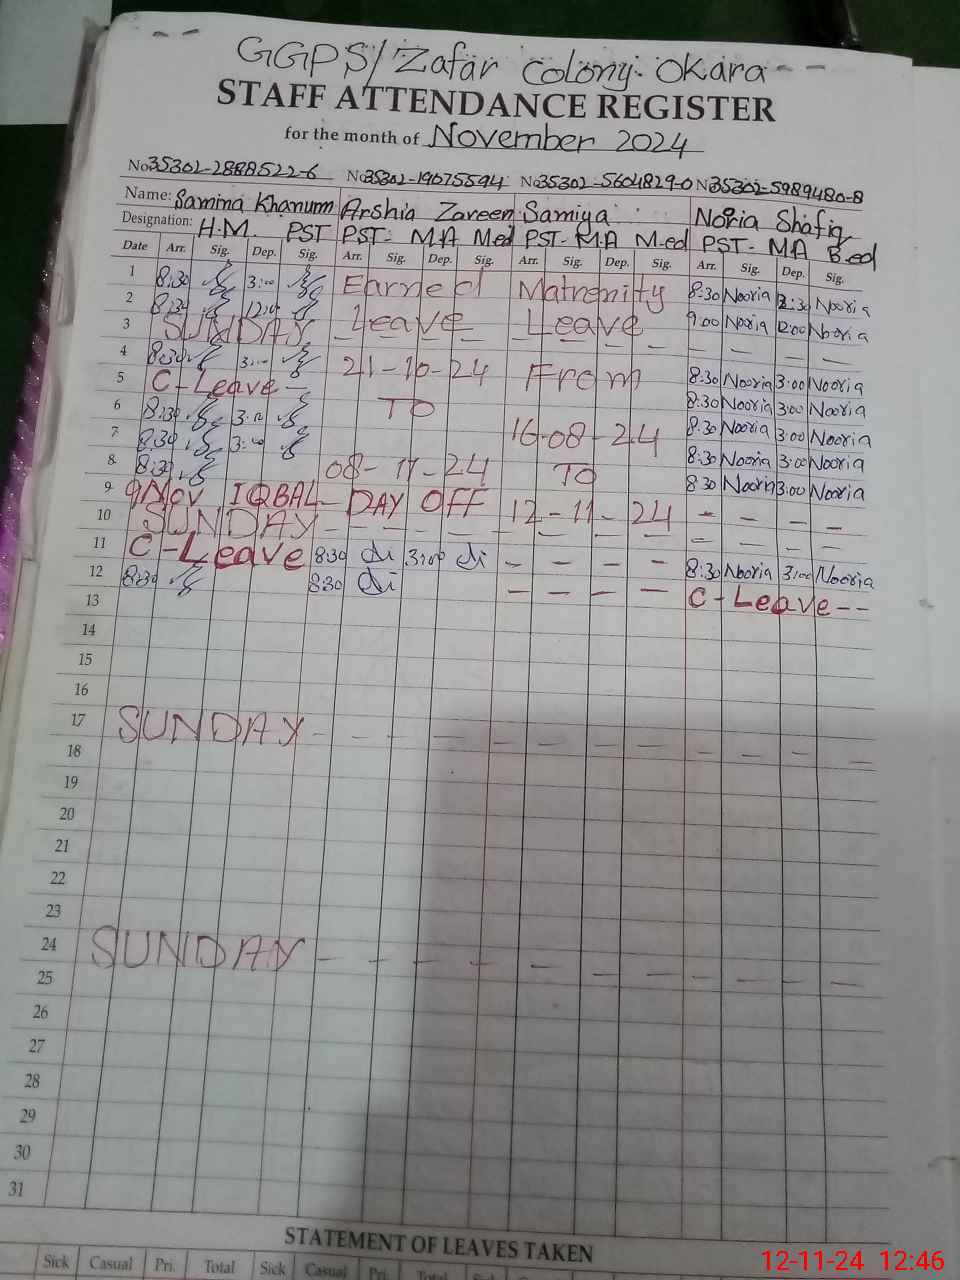 GGPS/Zafar Colony. Okara--
STAFF ATTENDANCE REGISTER
for the month of November 2024
No 35302-2888522-6 No 35302-19075594 No 35302-5604829-0 N 35302-5989480-8
Name: Samina Khanum Arshia Zareen Samiya Noria Shafiq
Designation: H.M. PST PST- M.A Med PST- M.A M.ed PST- MA B.ed
Date Arr. Sig. Dep. Sig. Arr. Sig. Dep. Sig. Arr. Sig. Dep. Sig. Arr. Sig. Dep. Sig.
1 8:30 3:00 Earned Matrenity 8:30 Nooria 3:30 Nooria
2 8:30 12:00 Leave Leave 9:00 Nooria 12:00 Nooria
3 SUNDAY - - - - - - - - - - - -
4 8:30 3:00 21-10-24 From 8:30 Nooria 3:00 Nooria
5 C-Leave - 8:30 Nooria 3:00 Nooria
6 8:30 3:00 TO 16-08-24 8:30 Nooria 3:00 Nooria
7 8:30 3:00 8:30 Nooria 3:00 Nooria
8 8:30 08-11-24 TO 8:30 Nooria 3:00 Nooria
9 9 Nov IQBAL- DAY OFF 12-11-24 - - - -
10 SUNDAY - - - - - - - - - - - -
11 C-Leave 8:30 3:00 - - - - 8:30 Nooria 3:00 Nooria
12 8:30 8:30 - - - - C-Leave--
13
14
15
16
17 SUNDAY - - - - - - - - - - - -
18
19
20
21
22
23
24 SUNDAY - - - - - - - - - - - -
25
26
27
28
29
30
31
STATEMENT OF LEAVES TAKEN
Sick Casual Pri. Total Sick Casual Pri. Total Sick
12-11-24 12:46